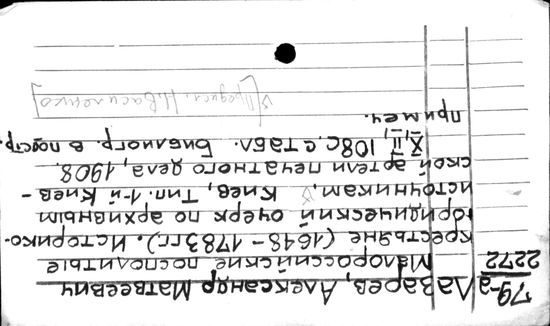 79-а Лазарев, Александр Матвеевич
2272
Малороссийские посполитые
крестьяне (1648-1783 гг.). Историко-
юридический очерк по архивным
источникам. Киев, Тип. 1-й Киев-
ской артели печатного дела, 1908.
X, II, 108 с. с табл. Библиогр. в постр.
примеч.
[Предисл. Н. Василенко]